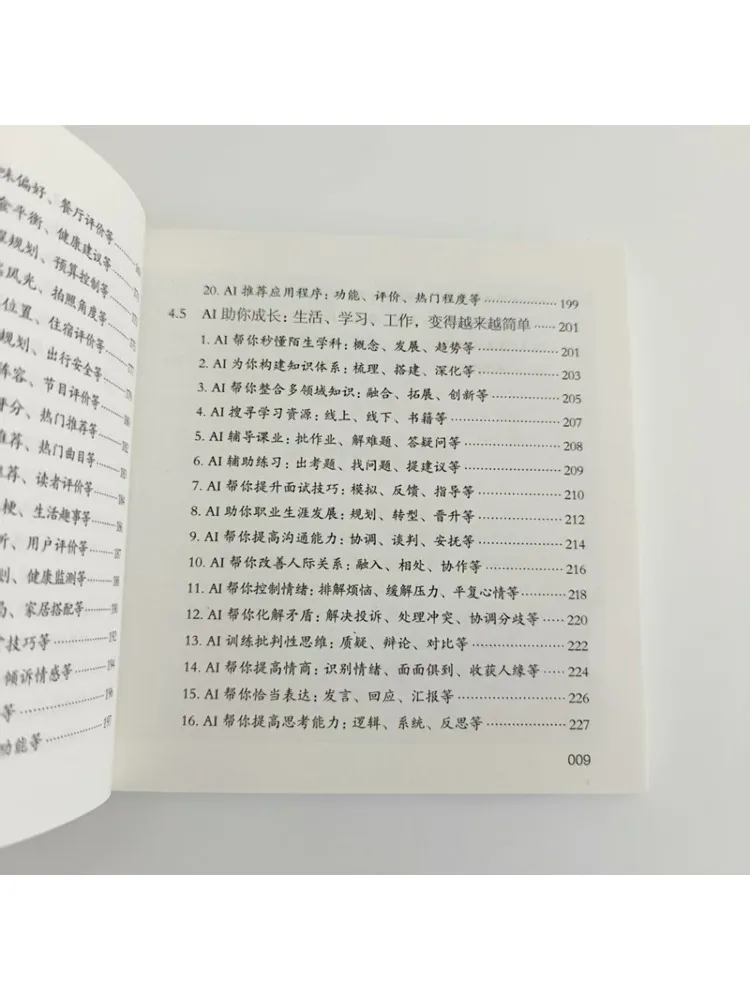 味偏好、餐厅评价等
平衡、健康建议等
规划、预算控制等
风光、拍照角度等
位置、住宿评价等
规划、出行安全等
阵容、节目评价等
评分、热门推荐等
推荐、热门曲目等
推荐、读者评价等 184
梗、生活趣事等 186
听、用户评价等 187
划、健康监测等 188
局、家居搭配等 190
技巧等 192
倾诉情感等 194
等 196
功能等 197
20. AI 推荐应用程序：功能、评价、热门程度等 199
4.5 AI 助你成长：生活、学习、工作，变得越来越简单 201
1. AI 帮你秒懂陌生学科：概念、发展、趋势等 201
2. AI 为你构建知识体系：梳理、搭建、深化等 203
3. AI 帮你整合多领域知识：融合、拓展、创新等 205
4. AI 搜寻学习资源：线上、线下、书籍等 207
5. AI 辅导课业：批作业、解难题、答疑问等 208
6. AI 辅助练习：出考题、找问题、提建议等 209
7. AI 帮你提升面试技巧：模拟、反馈、指导等 210
8. AI 助你职业生涯发展：规划、转型、晋升等 212
9. AI 帮你提高沟通能力：协调、谈判、安抚等 214
10. AI 帮你改善人际关系：融入、相处、协作等 216
11. AI 帮你控制情绪：排解烦恼、缓解压力、平复心情等 218
12. AI 帮你化解矛盾：解决投诉、处理冲突、协调分歧等 220
13. AI 训练批判性思维：质疑、辩论、对比等 222
14. AI 帮你提高情商：识别情绪、面面俱到、收获人缘等 224
15. AI 帮你恰当表达：发言、回应、汇报等 226
16. AI 帮你提高思考能力：逻辑、系统、反思等 227
009